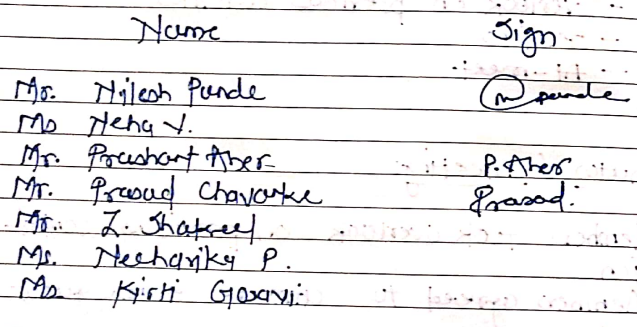 Name Sign
Mr. Nilesh Punde @punde
Ms Neha V.
Mr. Prashant Aher P. Aher
Mr. Prasad Chavanke Prasad.
Mr. Z. Shakeel
Ms. Neeharika P.
Ms Kirti Gosavi